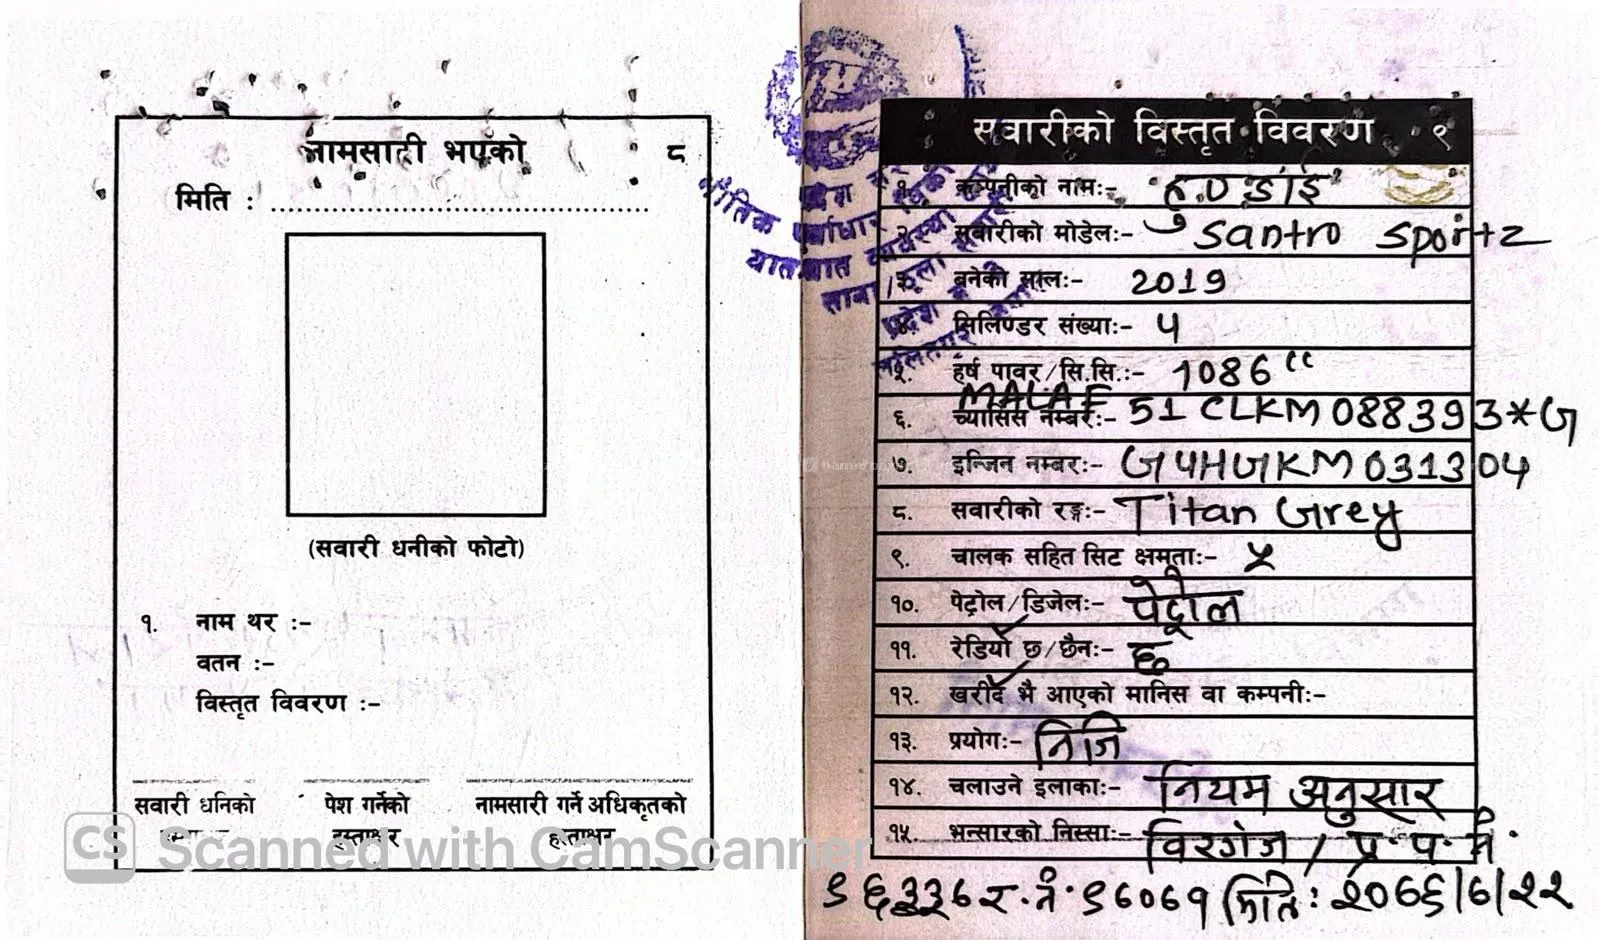 नामसारी भएको ८
मिति :
(सवारी धनीको फोटो)
१. नाम थर :-
वतन :-
विस्तृत विवरण :-
सवारी धनिको पेश गर्नेको नामसारी गर्ने अधिकृतको
हस्ताक्षर हस्ताक्षर
सवारीको विस्तृत विवरण ९
१. कम्पनीको नाम:- हुण्डाई
२. सवारीको मोडेल:- Santro Sportz
३. बनेको साल:- 2019
४. सिलिण्डर संख्या:- ५
५. हर्ष पावर/सि.सि.:- 1086 cc
MALAF
६. च्यासिस नम्बर:- 51CLKM088393*G
७. इन्जिन नम्बर:- G4HGKM031304
८. सवारीको रङ्ग:- Titan Grey
९. चालक सहित सिट क्षमता:- ५
१०. पेट्रोल/डिजेल:- पेट्रोल
११. रेडियो छ/छैन:- छ
१२. खरीद भै आएको मानिस वा कम्पनी:-
१३. प्रयोग:- निजि
१४. चलाउने इलाका:- नियम अनुसार
१५. भन्सारको निस्सा:- विरगंज / प्र.प.नं.
९६३३७ र.नं. ९७०७१ मिति: २०७६/७/२२
भौतिक पूर्वाधार
यातायात व्यवस्था
CS Scanned with CamScanner